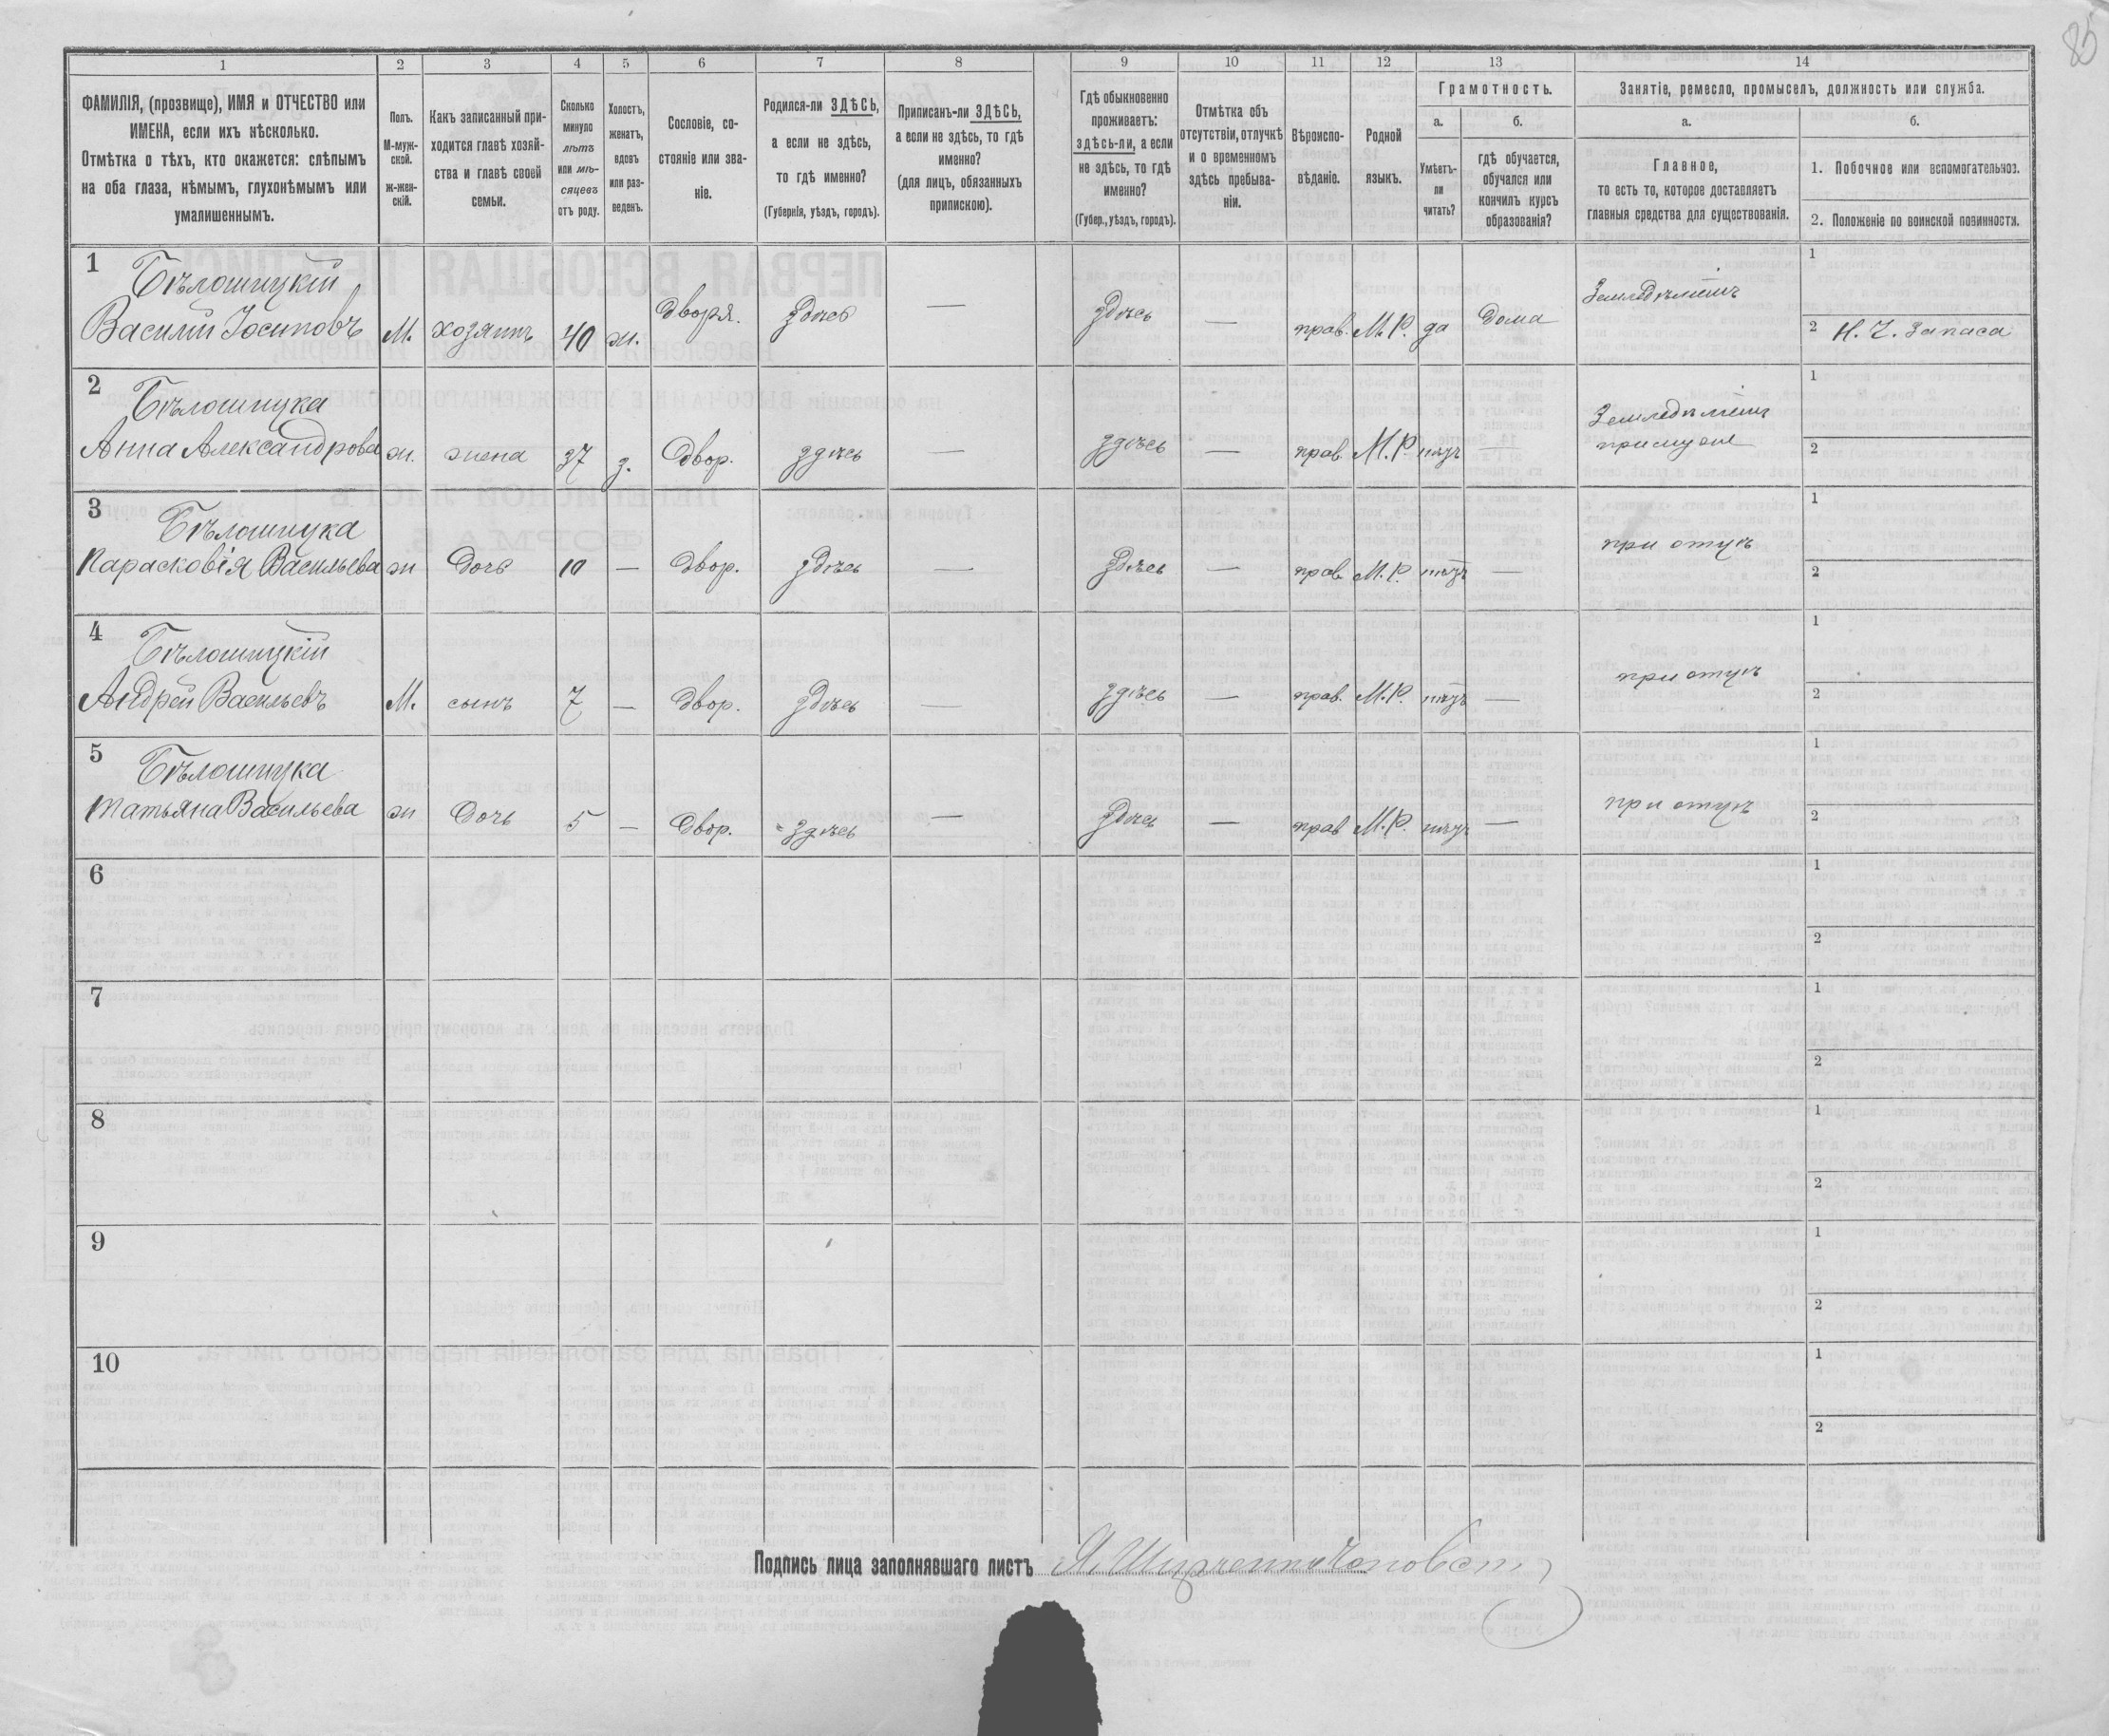 85
1 2 3 4 5 6 7 8 9 10 11 12 13 14
ФАМИЛІЯ, (прозвище), ИМЯ и ОТЧЕСТВО или
ИМЕНА, если ихъ нѣсколько.
Отмѣтка о тѣхъ, кто окажется: слѣпымъ
на оба глаза, нѣмымъ, глухонѣмымъ или
умалишеннымъ.
Полъ.
М-муж-
ской.
ж-жен-
скій.
Какъ записанный при-
ходится главѣ хозяй-
ства и главѣ своей
семьи.
Сколько
минуло
лѣтъ
или мѣ-
сяцевъ
отъ роду.
Холостъ,
женатъ,
вдовъ
или раз-
веденъ.
Сословіе, со-
стояніе или зва-
ніе.
Родился-ли ЗДѢСЬ,
а если не здѣсь,
то гдѣ именно?
(Губернія, уѣздъ, городъ).
Приписанъ-ли ЗДѢСЬ,
а если не здѣсь, то гдѣ
именно?
(для лицъ, обязанныхъ
припискою).
Гдѣ обыкновенно
проживаетъ:
здѣсь-ли, а если
не здѣсь, то гдѣ
именно?
(Губер., уѣздъ, городъ).
Отмѣтка объ
отсутствіи, отлучкѣ
и о временномъ
здѣсь пребыва-
ніи.
Вѣроиспо-
вѣданіе.
Родной
языкъ.
Грамотность.
а.
Умѣетъ-
ли
читать?
б.
гдѣ обучается,
обучался или
кончилъ курсъ
образованія?
Занятіе, ремесло, промыселъ, должность или служба.
а.
Главное,
то есть то, которое доставляетъ
главныя средства для существованія.
б.
1. Побочное или вспомогательное.
2. Положеніе по воинской повинности.
1 Бѣлошицкій
Василій Іосиповъ М. хозяинъ 40 ж. дворя. здѣсь — здѣсь — прав. М.Р. да дома Земледѣлецъ
1
2 Н. Ч. Запаса
2 Бѣлошицка
Анна Александрова ж. жена 37 з. двор. здѣсь — здѣсь — прав. М.Р. нѣтъ —
при мужѣ
1
2
3 Бѣлошицка
Парасковія Васильева ж дочь 10 — двор. здѣсь — здѣсь — прав. М.Р. нѣтъ — при отцѣ
1
2
4 Бѣлошицкій
Андрей Васильевъ М. сынъ 7 — двор. здѣсь — здѣсь — прав. М.Р. нѣтъ — при отцѣ
1
2
5 Бѣлошицка
Татьяна Васильева ж дочь 5 — двор. здѣсь — здѣсь — прав М.Р. нѣтъ — при отцѣ
1
2
6
1
2
7
1
2
8
1
2
9
1
2
10
1
2
Подпись лица заполнявшаго листъ